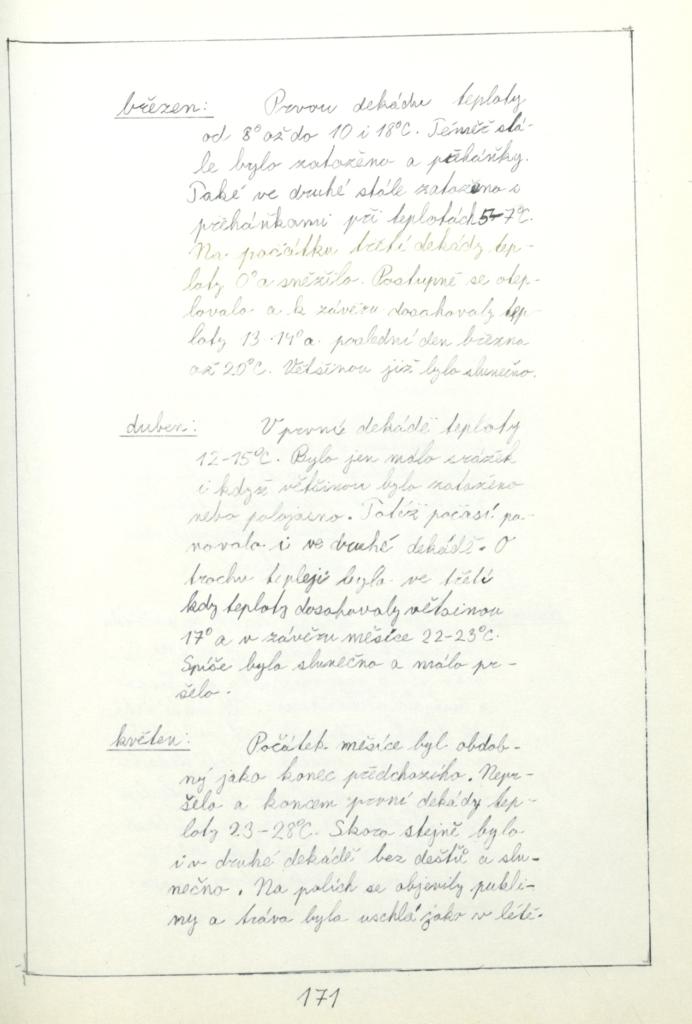 březen: Prvou dekádu teploty
od 8° až do 10 i 18°C. Téměř stá-
le bylo zataženo a přeháňky.
Také ve druhé stále zataženo s
přeháňkami při teplotách 5-7°C.
Na počátku třetí dekády tep-
loty 0° a sněžilo. Postupně se otep-
lovalo a k závěru dosahovaly tep-
loty 13-14° a poslední den března
až 20°C. Většinou již bylo slunečno.
duben: V první dekádě teploty
12-15°C. Bylo jen málo srážek
i když většinou bylo zataženo
nebo polojasno. Totéž počasí pa-
novalo i ve druhé dekádě. O
trochu tepleji bylo ve třetí
kdy teploty dosahovaly většinou
17° a v závěru měsíce 22-23°C.
Spíše bylo slunečno a málo pr-
šelo.
květen: Počátek měsíce byl obdob-
ný jako konec předchozího. Nepr-
šelo a koncem první dekády tep-
loty 23-28°C. Skoro stejně bylo
i v druhé dekádě bez dešťů a slu-
nečno. Na polích se objevily pukli-
ny a tráva byla uschlá jako v létě.
171